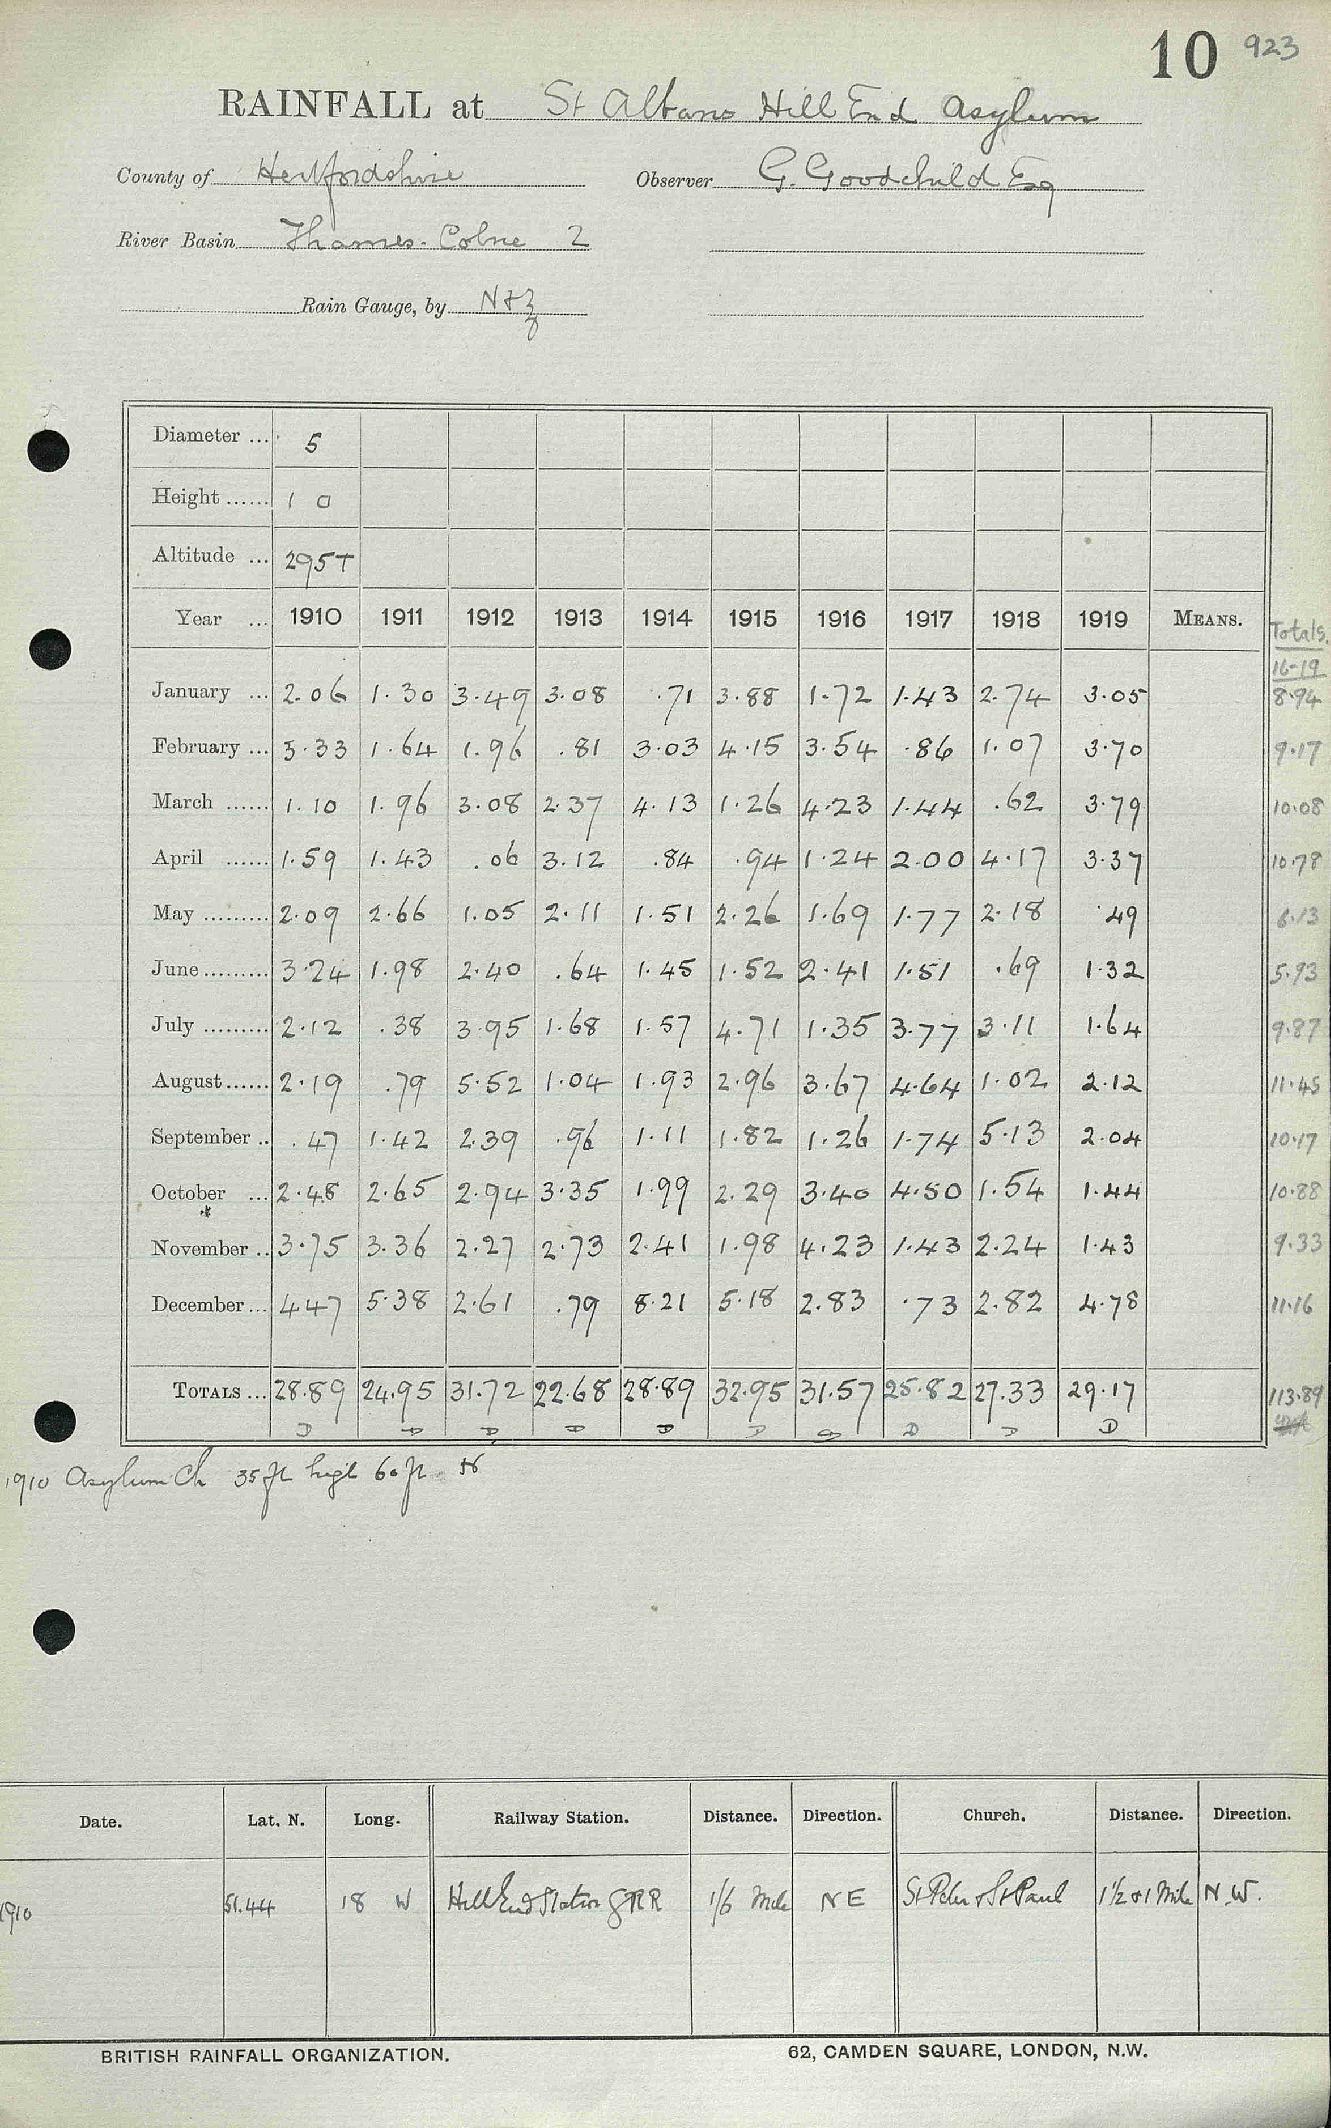 10 923
RAINFALL at St Albans Hill End Asylum
County of Hertfordshire Observer G. Goodchild Esq
River Basin Thames. Colne 2
Rain Gauge, by N & Z
Diameter ... 5
Height ...... 1 0
Altitude ... 295+
Year ... 1910 1911 1912 1913 1914 1915 1916 1917 1918 1919 MEANS. Totals.
16-19
January ... 2.06 1.30 3.49 3.08 .71 3.88 1.72 1.43 2.74 3.05 8.94
February ... 3.33 1.64 1.96 .81 3.03 4.15 3.54 .86 1.07 3.70 9.17
March ...... 1.10 1.96 3.08 2.37 4.13 1.26 4.23 1.44 .62 3.79 10.08
April ...... 1.59 1.43 .06 3.12 .84 .94 1.24 2.00 4.17 3.37 10.78
May ......... 2.09 2.66 1.05 2.11 1.51 2.26 1.69 1.77 2.18 .49 6.13
June ......... 3.24 1.98 2.40 .64 1.45 1.52 2.41 1.51 .69 1.32 5.93
July ......... 2.12 .38 3.95 1.68 1.57 4.71 1.35 3.77 3.11 1.64 9.87
August ...... 2.19 .79 5.52 1.04 1.93 2.96 3.67 4.64 1.02 2.12 11.45
September .. .47 1.42 2.39 .96 1.11 1.82 1.26 1.74 5.13 2.04 10.17
October ... 2.48 2.65 2.94 3.35 1.99 2.29 3.40 4.50 1.54 1.44 10.88
November .. 3.75 3.36 2.27 2.73 2.41 1.98 4.23 1.43 2.24 1.43 9.33
December ... 4.47 5.38 2.61 .79 8.21 5.18 2.83 .73 2.82 4.78 11.16
TOTALS ... 28.89 24.95 31.72 22.68 28.89 32.95 31.57 25.82 27.33 29.17 113.89
D D D D D D D D D D
1910 Asylum Ch 35 ft high 60 ft N
Date. Lat. N. Long. Railway Station. Distance. Direction. Church. Distance. Direction.
1910 51.44 18 W Hill End Station GNR 1/6 Mile NE St Peter & St Paul 1 1/2 Mile N.W.
BRITISH RAINFALL ORGANIZATION. 62, CAMDEN SQUARE, LONDON, N.W.